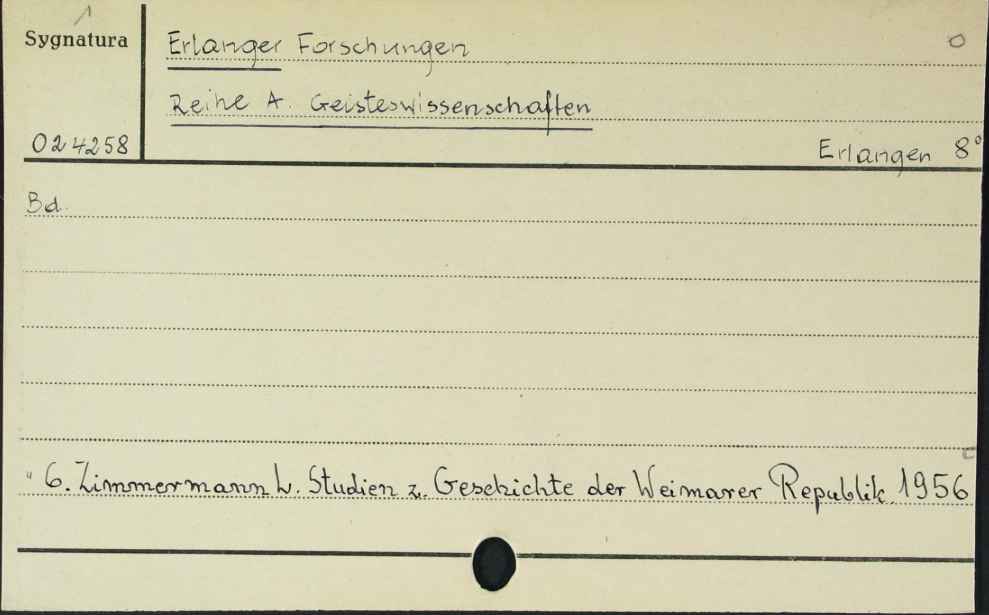 Sygnatura
Erlanger Forschungen
Reihe A. Geisteswissenschaften
024258
Erlangen 8°
Bd.
" 6. Zimmermann L. Studien z. Geschichte der Weimarer Republik 1956